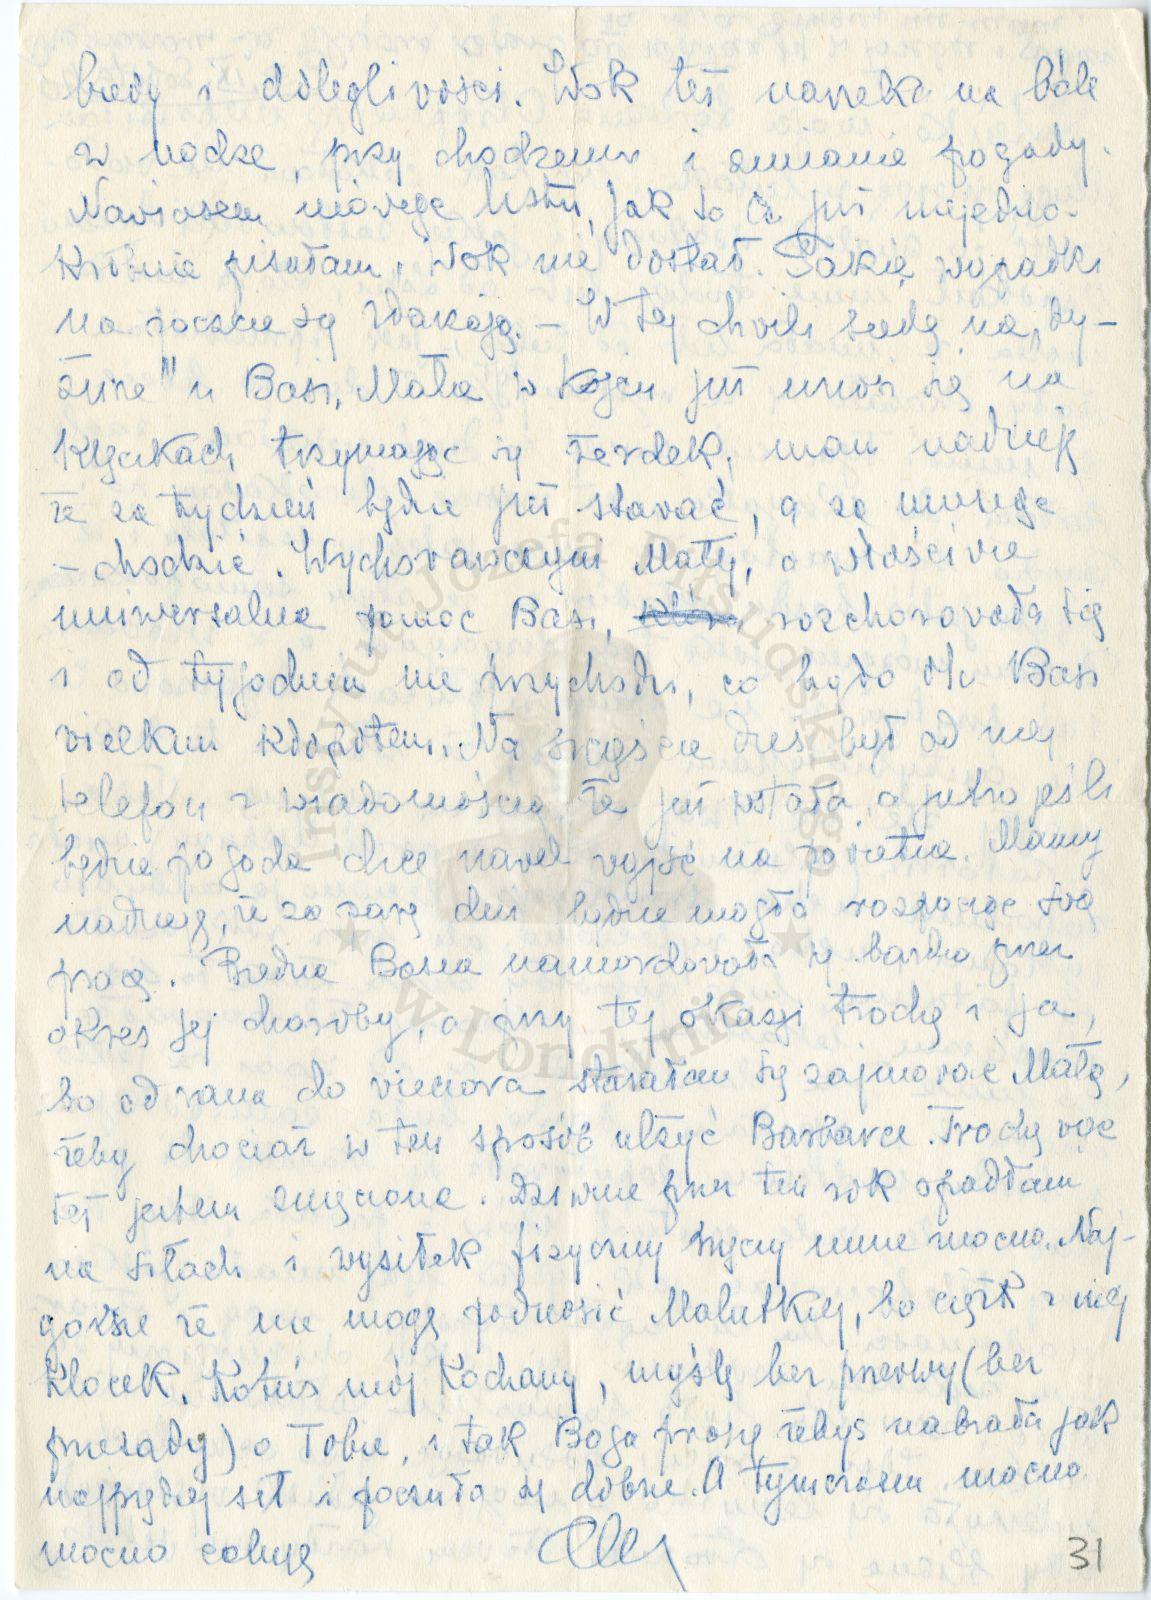 biedy i dolegliwości. Wok też narzeka na bóle
w nodze, przy chodzeniu i zmianie pogody.
Nawiasem mówiąc listu, jak to Ci już niejedno-
krotnie pisałam, Wok nie dostał. Takie wypadki
na poczcie się zdarzają. – W tej chwili siedzę na „dy-
żurze" u Basi, Mała w kojcu już unosi się na
klęczkach trzymając się żerdek, mam nadzieję
że za tydzień będzie już stawać, a za miesiąc
– chodzić. Wychowawczyni Małej, a właściwie
uniwersalna pomoc Basi, rozchorowała się
i od tygodnia nie przychodzi, co było dla Basi
wielkim kłopotem. Na szczęście dziś był od niej
telefon z wiadomością, że już wstała, a jutro jeśli
będzie pogoda chce nawet wyjść na powietrze. Mamy
nadzieję, że za parę dni będzie mogła rozpocząć swą
pracę. Biedna Basia namordowała się bardzo przez
okres jej choroby, a przy tej okazji trochę i ja,
bo od rana do wieczora starałam się zajmować Małą,
żeby chociaż w ten sposób ulżyć Barbarce. Trochę więc
też jestem zmęczona. Dziwnie przez ten rok opadłam
na siłach i wysiłek fizyczny męczy mnie mocno. Naj-
gorsze że nie mogę podnosić Malutkiej, bo ciężki z niej
klocek. Kotuś mój Kochany, myślę bez przerwy (bez
przesady) o Tobie, i tak Boga proszę żebyś nabrała jak
najprędzej sił i poczuła się dobrze. A tymczasem mocno
mocno całuję
31
Instytut Józefa Piłsudskiego
w Londynie